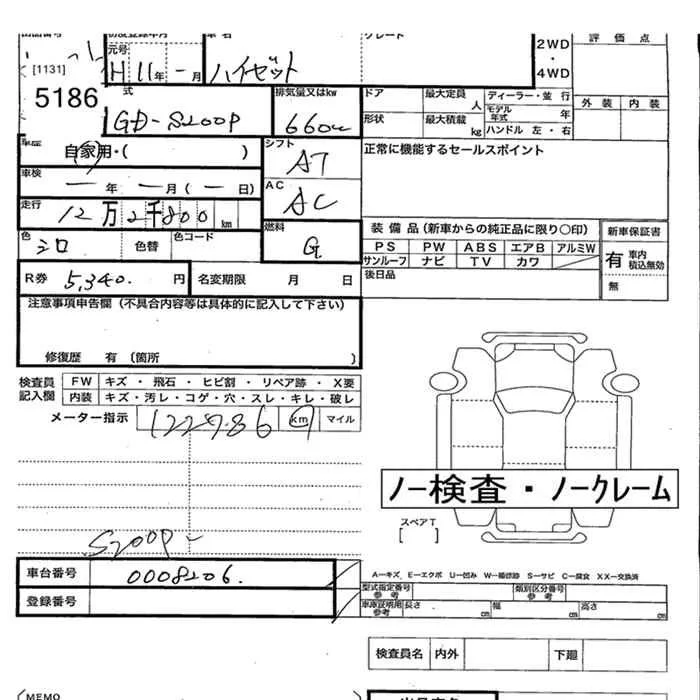 初度登録年月 車名 グレード
元号
[1131]
5186
H11年 - 月
ハイゼット
2WD
・
4WD
評価点
外装 内装
式
GD-S200P
排気量又はkw
660cc
ドア
最大定員 人
ディーラー・並行
モデル年式 年
形状
最大積載 kg
ハンドル 左・右
自家用・( )
シフト
AT
正常に機能するセールスポイント
車検
— 年 — 月 ( — 日)
AC
AC
走行
12万2千800km
装備品(新車からの純正品に限り〇印)
新車保証書
色
シロ
色替
色コード
燃料
G
PS PW ABS エアB アルミW
サンルーフ ナビ TV カワ
有 車内積込無効
無
R券 5,340. 円
名変期限 月 日
後日品
注意事項申告欄(不具合内容等は具体的に記入して下さい)
修復歴 有〔箇所 〕
検査員記入欄
FW キズ・飛石・ヒビ割・リペア跡・X要
内装 キズ・汚レ・コゲ・穴・スレ・キレ・破レ
メーター指示 122786 km マイル
ノー検査・ノークレーム
スペアT
[ ]
S200P-
車台番号 0008206.
登録番号
A—キズ E—エクボ U—凹み W—補修跡 S—サビ C—腐食 XX—交換済
型式指定番号参考
類別区分番号参考
車庫証明用参考 長さ cm 幅 cm 高さ cm
検査員名 内外 下廻
MEMO